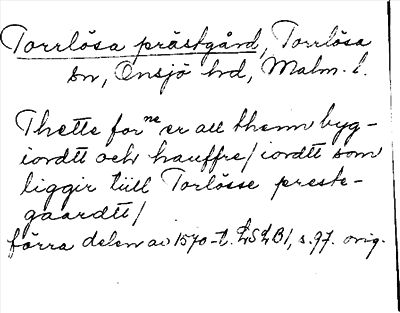 Torrlösa prästgård, Torrlösa
sn, Onsjö hd, Malm. l.
Thette for ne er all thenn byg-
iordtt och hauffre/iordtt som
liggir tiill Torlösse preste-
gaardtt/
förra delen av 1570-t. LSLB1, s. 97. orig.